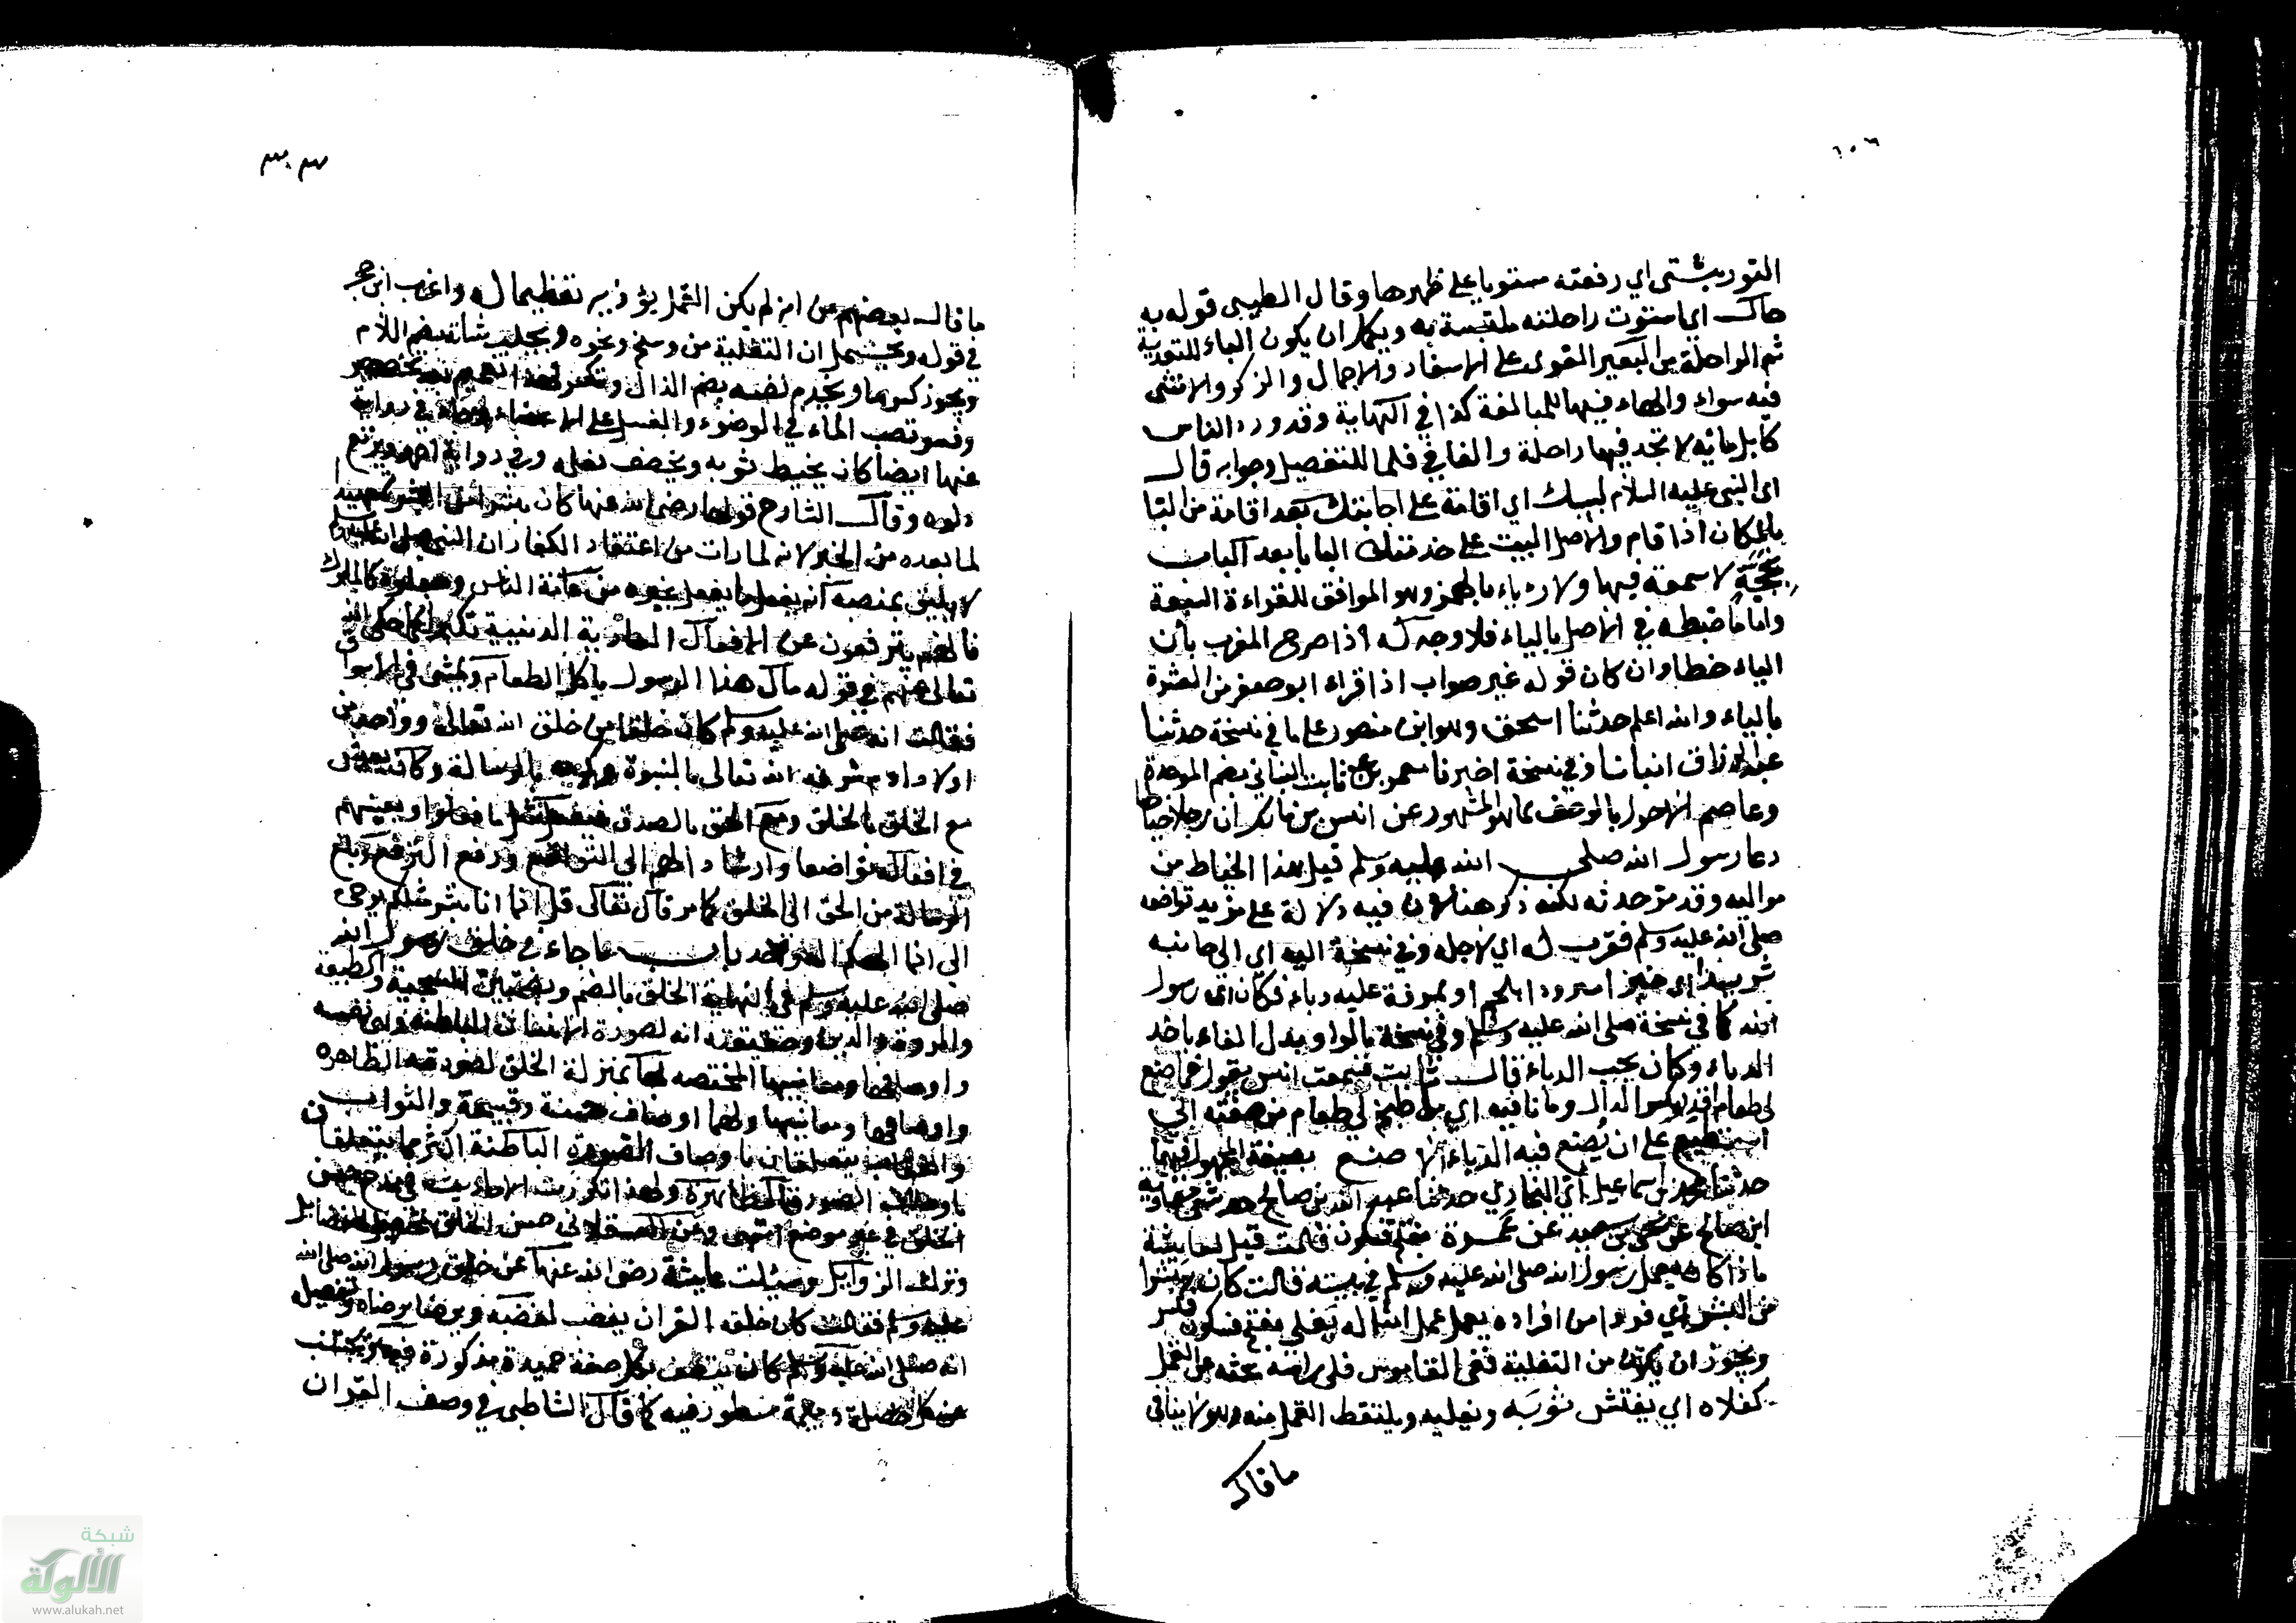 التوربشتي اي رفعته مستويا على ظهرها وقال الطيبي قوله به
حال اي استوت راحلته ملتبسة به ويمكن ان يكون الباء للتعدية
ثم الراحلة من البعير القوى على الاسفار والاحمال والذكر والانثى
فيه سواء والهاء فيها للمبالغة كذا في النهاية وقد ورد الناس
كابل مائه لا تجد فيها راحلة والفا في فلما للتفصيل وجوابه قال
اى النبي عليه السلام لبيك اي اقامة على اجابتك بعد اقامة من البا
بالمكان اذا قام
بحجة لا سمعة فيها ولا رياء بالهمز وهو الموافق للقراءة السبعة
واما ما ضبطه في الاصل بالياء فلا وجه له اذا صرح المغرب بان
الياء خطا وان كان قوله غير صواب اذا قراء ابو جعفر من العشرة
بالياء والله اعلم حدثنا اسحق وهو ابن منصور على ما في نسخة حدثنا
عبد الرزاق انبانا وفي نسخة اخبرنا معمر عن ثابت البناني بضم الموحدة
وعاصم الاحول بالوصف كما هو المشهور عن انس بن مالك ان رجلا خياطا
دعا رسول الله صلى الله عليه وسلم قيل هذا الخياط من
مواليه وقد مر حدثه لكنه ذكر هنا لان فيه دلالة على مزيد تواضعه
صلى الله عليه وسلم فقرب له اي لاجله وفي نسخة اليه اي الى جانبه
ثريدا اى خبز امثرودا بلحم او بمرقة عليه دباء فكان اى رسول
الله كما في نسخة صلى الله عليه وسلم وفي نسخة بالواو بدل الفاء ياخذ
الدباء وكان يحب الدباء قال ثابت فسمعت انس يقول فما صنع
لي طعام اقدر بكسر الدال وما نافيه اي ما طبخ لي طعام من صفته اني
استطيع على ان يصنع فيه الدباء الا صنع بصيغة المجهول فيهما
حدثنا محمد بن اسماعيل اى البخاري حدثنا عبد الله بن صالح حدثني معاوية
ابن صالح عن يحيى بن سعيد عن عمرة بفتح فسكون قالت قيل لعايشة
ماذا كان يعمل رسول الله صلى الله عليه وسلم في بيته قالت كان بشرا
من البشر اي فردا من افراده يعمل عمل امثاله يفلى بفتح فسكون فكسر
ويجوز ان يكون من التفلية ففي القاموس فلى راسه بحثه عن القمل
كفلاه اي يفتش ثوبه ويفليه ويلتقط القمل منه وهو لا ينافي
ما قال
ما قال بعضهم من انه لم يكن القمل يؤذيه تعظيما له واغرب ابن حجر
في قوله ويحتمل ان التفلية من وسخ ونحوه ويحلب شاته بضم اللام
ويجوز كسرها ويخدم نفسه بضم الدال وتكسر
وهو تصب الماء في الوضوء والغسل على الاعضاء في رواية
عنها ايضا كان يخيط ثوبه ويخصف نعله وفي رواية احمد ويرقع
دلوه وقال الشارح قولها رضي الله عنها كان بشرا من البشر تمهيدا
لما بعده من الخبر لانه لما رات من اعتقاد الكفار ان النبي صلى الله عليه وسلم
لا يليق بمنصبه ان يفعل ما يفعل غيره من عامة الناس وجعلوه كالملوك
فانهم يترفعون عن الافعال العادية الدنيية تكبرا كما حكى الله
تعالى عنهم في قوله مال هذا الرسول ياكل الطعام ويمشي في الاسواق
فقالت انه صلى الله عليه وسلم كان خلقا من خلق الله تعالى وواحد من
اولاد ادم شرفه الله تعالى بالنبوة وكرمه بالرسالة وكان يعيش
مع الخلق بالخلق ومع الحق بالصدق فيفعل مثل ما فعلوا ويعينهم
في افعاله تواضعا وارشادا لهم الى التواضع ورفع الترفع وبلغ
الرسالة من الحق الى الخلق كما مر قال تعالى قل انما انا بشر مثلكم يوحى
الى انما الهكم اله واحد باب ما جاء في خلق رسول الله
صلى الله عليه وسلم في النهاية الخلق بالضم وبضمتين السجية والطبيعة
والمروة والدين وحقيقته انه لصورة الانسان الباطنة وهي نفسه
واوصافها ومعانيها المختصه لها بمنزلة الخلق لصورته الظاهرة
واوصافها ومعانيها ولهما اوصاف حسنة وقبيحة والثواب
والعقاب يتعلقان باوصاف الصورة الباطنة اكثر مما يتعلقان
باوصاف الصورة الظاهرة ولهذا تكررت الاحاديث في مدح حسن
الخلق في غير موضع انتهى وعن العسقلاني حسن الخلق
وترك الرذايل وسيلت عايشة رضي الله عنها عن خلق رسول الله صلى الله
عليه وسلم فقالت كان خلقه القران يغضب لغضبه ويرضا برضاه وتفصيله
انه صلى الله عليه وسلم كان يتصف بكل صفة حميدة مذكورة فيه ويجتنب
عن كل خصلة ذميمة مسطور فيه كما قال الشاطبي في وصف القران
شبكة
الألوكة
www.alukah.net